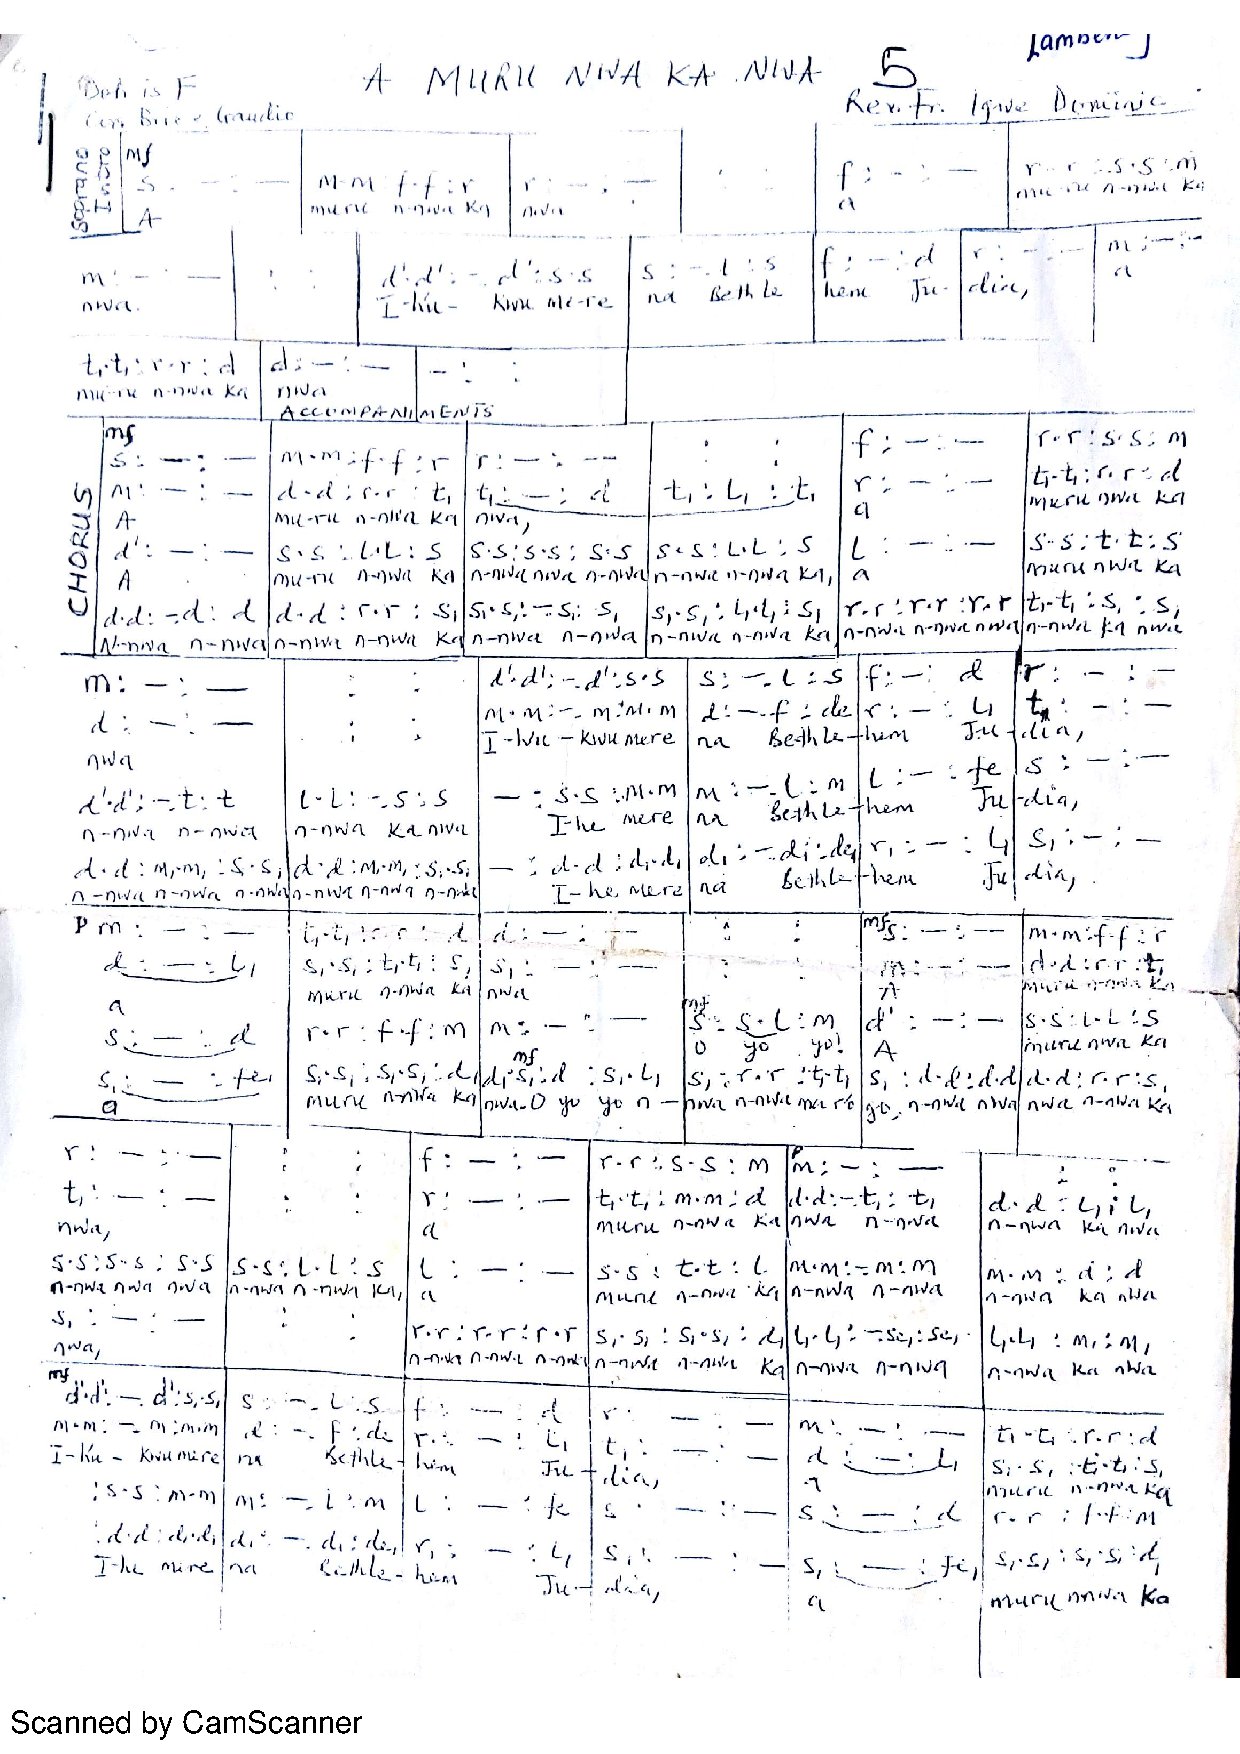 A MURU NWA KA NWA 5
Doh is F
Con Brio e Gaudio
Rev. Fr. Igwe Dominic
Soprano Intro
mf
s : – : – | m.m : f.f : r | r : – : – | : : | f : – : – | r.r : s.s : m
A muru n-nwa ka nwa a mu-ru n-nwa ka
m : – : – | : : | d'.d' : -. d' : s.s | s : -. l : s | f : – : d | r : – : – | m : – : –
nwa. I-hu- kwu me-re na Bethle hem Ju- dia, a
t₁.t₁ : r.r : d | d : – : – | – : :
mu-ru n-nwa ka nwa
ACCOMPANIMENTS
CHORUS
mf
s : – : – | m.m : f.f : r | r : – : – | : : | f : – : – | r.r : s.s : m
m : – : – | d.d : r.r : t₁ | t₁ : – : d | t₁ : l₁ : t₁ | r : – : – | t₁.t₁ : r.r : d
A mu-ru n-nwa ka nwa, a muru nwa ka
d' : – : – | s.s : l.l : s | s.s : s.s : s.s | s.s : l.l : s | l : – : – | s.s : t.t : s
A mu-ru n-nwa ka n-nwa nwa n-nwa n-nwa n-nwa ka, a muru nwa ka
d.d : -d : d | d.d : r.r : s₁ | s₁.s₁ : -s₁ : s₁ | s₁.s₁ : l₁.l₁ : s₁ | r.r : r.r : r.r | t₁.t₁ : s₁ : s₁
N-nwa n-nwa n-nwa n-nwa ka n-nwa n-nwa n-nwa n-nwa ka n-nwa n-nwa nwa n-nwa ka nwa
m : – : – | : : | d'.d' : -. d' : s.s | s : -. l : s | f : – : d | r : – : –
d : – : – | : : | m.m : -. m : m.m | d : -. f : de | r : – : l₁ | t₁ : – : –
nwa I-hu - kwu mere na Bethle-hem Ju-dia,
d'.d' : -. t : t | l.l : -. s : s | – : s.s : m.m | m : -. l : m | l : – : fe | s : – : –
n-nwa n-nwa n-nwa ka nwa I-he mere na Bethle-hem Ju-dia,
d.d : m₁.m₁ : s₁.s₁ | d.d : m₁.m₁ : s₁.s₁ | – : d.d : d₁.d₁ | d₁ : -. d₁ : de₁ | r₁ : – : l₁ | s₁ : – : –
n-nwa n-nwa n-nwa n-nwa n-nwa n-nwa I-he mere na Bethle-hem Ju dia,
P m : – : – | t₁.t₁ : r.r : d | d : – : – | : : | mf s : – : – | m.m : f.f : r
d : – : l₁ | s₁.s₁ : t₁.t₁ : s₁ | s₁ : – : – | : : | m : – : – | d.d : r.r : t₁
a muru n-nwa ka nwa A muru n-nwa ka
s : – : d | r.r : f.f : m | m : – : – | mf s : s.l : m | d' : – : – | s.s : l.l : s
O yo yo! A muru nwa ka
s₁ : – : fe₁ | s₁.s₁ : s₁.s₁ : d₁ | d₁. mf s₁ : d : s₁.l₁ | s₁ : r.r : t₁.t₁ | s₁ : d.d : d.d | d.d : r.r : s₁
a muru n-nwa ka nwa-O yo yo n-nwa n-nwa ma ro go, n-nwa nwa nwa n-nwa ka
r : – : – | : : | f : – : – | r.r : s.s : m | P m : – : – | : :
t₁ : – : – | : : | r : – : – | t₁.t₁ : m.m : d | d.d : -t₁ : t₁ | d.d : l₁ : l₁
nwa, a muru n-nwa ka nwa n-nwa n-nwa ka nwa
s.s : s.s : s.s | s.s : l.l : s | l : – : – | s.s : t.t : l | m.m : -m : m | m.m : d : d
n-nwa nwa nwa n-nwa n-nwa ka, a muru n-nwa ka n-nwa n-nwa n-nwa ka nwa
s₁ : – : – | : : | r.r : r.r : r.r | s₁.s₁ : s₁.s₁ : d₁ | l₁.l₁ : -se₁ : se₁ | l₁.l₁ : m₁ : m₁
nwa, n-nwa n-nwa n-nwa n-nwa n-nwa ka n-nwa n-nwa n-nwa ka nwa
mf
d'.d' : -. d' : s.s | s : -. l : s | f : – : d | r : – : – | m : – : – | t₁.t₁ : r.r : d
m.m : -. m : m.m | d : -. f : de | r : – : l₁ | t₁ : – : – | d : – : l₁ | s₁.s₁ : t₁.t₁ : s₁
I-hu - kwu mere na Bethle-hem Ju-dia, a muru n-nwa ka
: s.s : m.m | m : -. l : m | l : – : fe | s : – : – | s : – : d | r.r : f.f : m
: d.d : d₁.d₁ | d₁ : -. d₁ : de₁ | r₁ : – : l₁ | s₁ : – : – | s₁ : – : fe₁ | s₁.s₁ : s₁.s₁ : d₁
I-he mere na Bethle-hem Ju-dia, a muru nnwa ka
Scanned by CamScanner